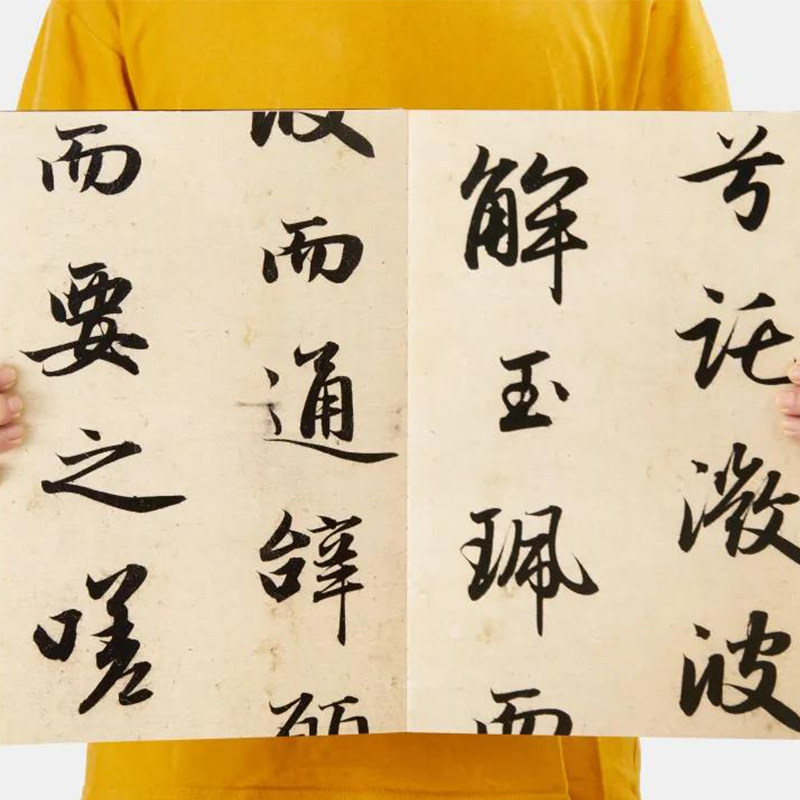 兮託溦波
解玉珮而
而通辝
而要之嗟